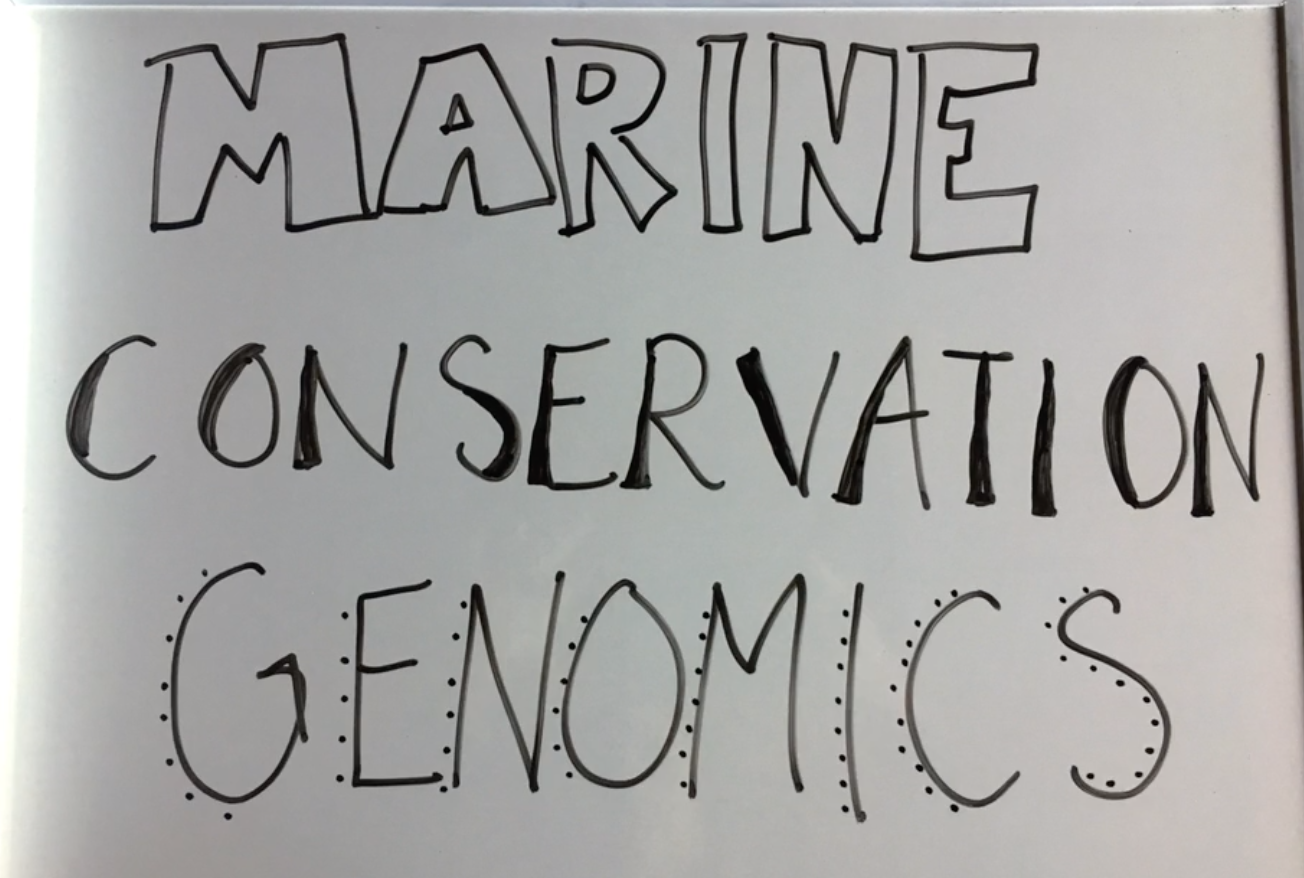 MARINE
CONSERVATION
GENOMICS